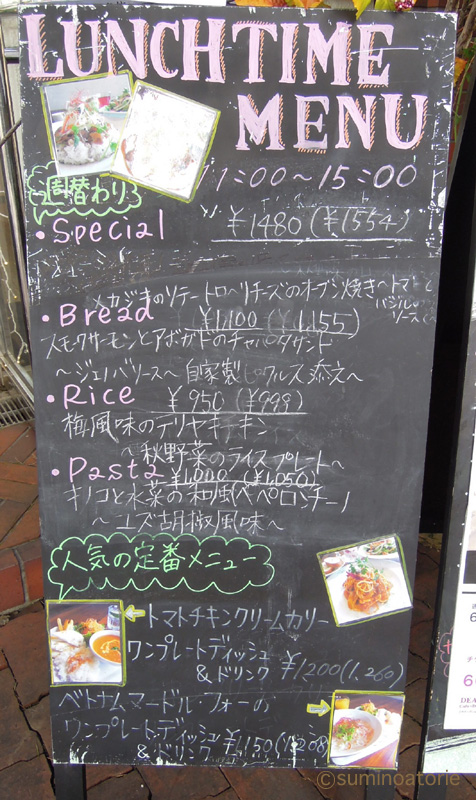 LUNCHTIME
MENU
11:00～15:00
週替わり
・Special
¥1480(¥1554)
メカジキのソテー トロ～リチーズのオーブン焼き～トマトと
バジルソース～
・Bread ¥1,100 (¥1,155)
スモークサーモンとアボガドのチャバタサンド
～ジェノバソース～ 自家製ピクルス添え～
・Rice ¥950 (¥998)
梅風味のテリヤキチキン
～秋野菜のライスプレート～
・Pasta ¥1,000 (¥1,050)
キノコと水菜の和風ペペロンチーノ
～ユズ胡椒風味～
人気の定番メニュー
トマトチキンクリームカリー
ワンプレートディッシュ
&ドリンク ¥1200(1,260)
ベトナムヌードル フォーの
ワンプレートディッシュ
&ドリンク ¥1,150(1208)
©suminoatorie